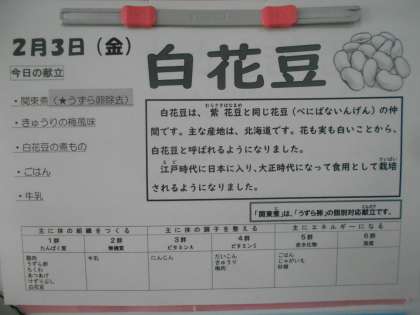 2月3日（金）
白花豆
今日の献立
・関東煮（★うずら卵除去）
・きゅうりの梅風味
・白花豆の煮もの
・ごはん
・牛乳
白花豆は、紫花豆と同じ花豆（べにばないんげん）の仲
間です。主な産地は、北海道です。花も実も白いことから、
白花豆と呼ばれるようになりました。
江戸時代に日本に入り、大正時代になって食用として栽培
されるようになりました。
「関東煮」は、「うずら卵」の個別対応献立です。
主に体の組織をつくる 主に体の調子を整える 主にエネルギーになる
1群 2群 3群 4群 5群 6群
たんぱく質 無機質 ビタミンA ビタミンC 炭水化物 脂質
鶏肉 牛乳 にんじん だいこん ごはん
うずら卵 きゅうり じゃがいも
ちくわ 梅肉 砂糖
あつあげ
けずりぶし
白花豆